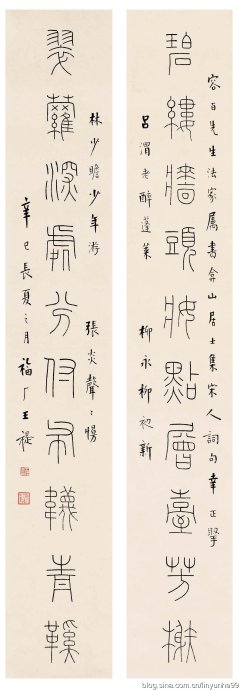 容百先生法家屬書弇山居士集宋人詞句幸正擘
碧縷牆頭妝點層臺芳榭
呂渭老醉蓬萊 柳永柳初新
林少瞻少年游 張炎聲〻慢
翠蘿深處分付布韈青鞵
辛巳長夏之月福厂王禔
blog.sina.com.cn/linyunhe99